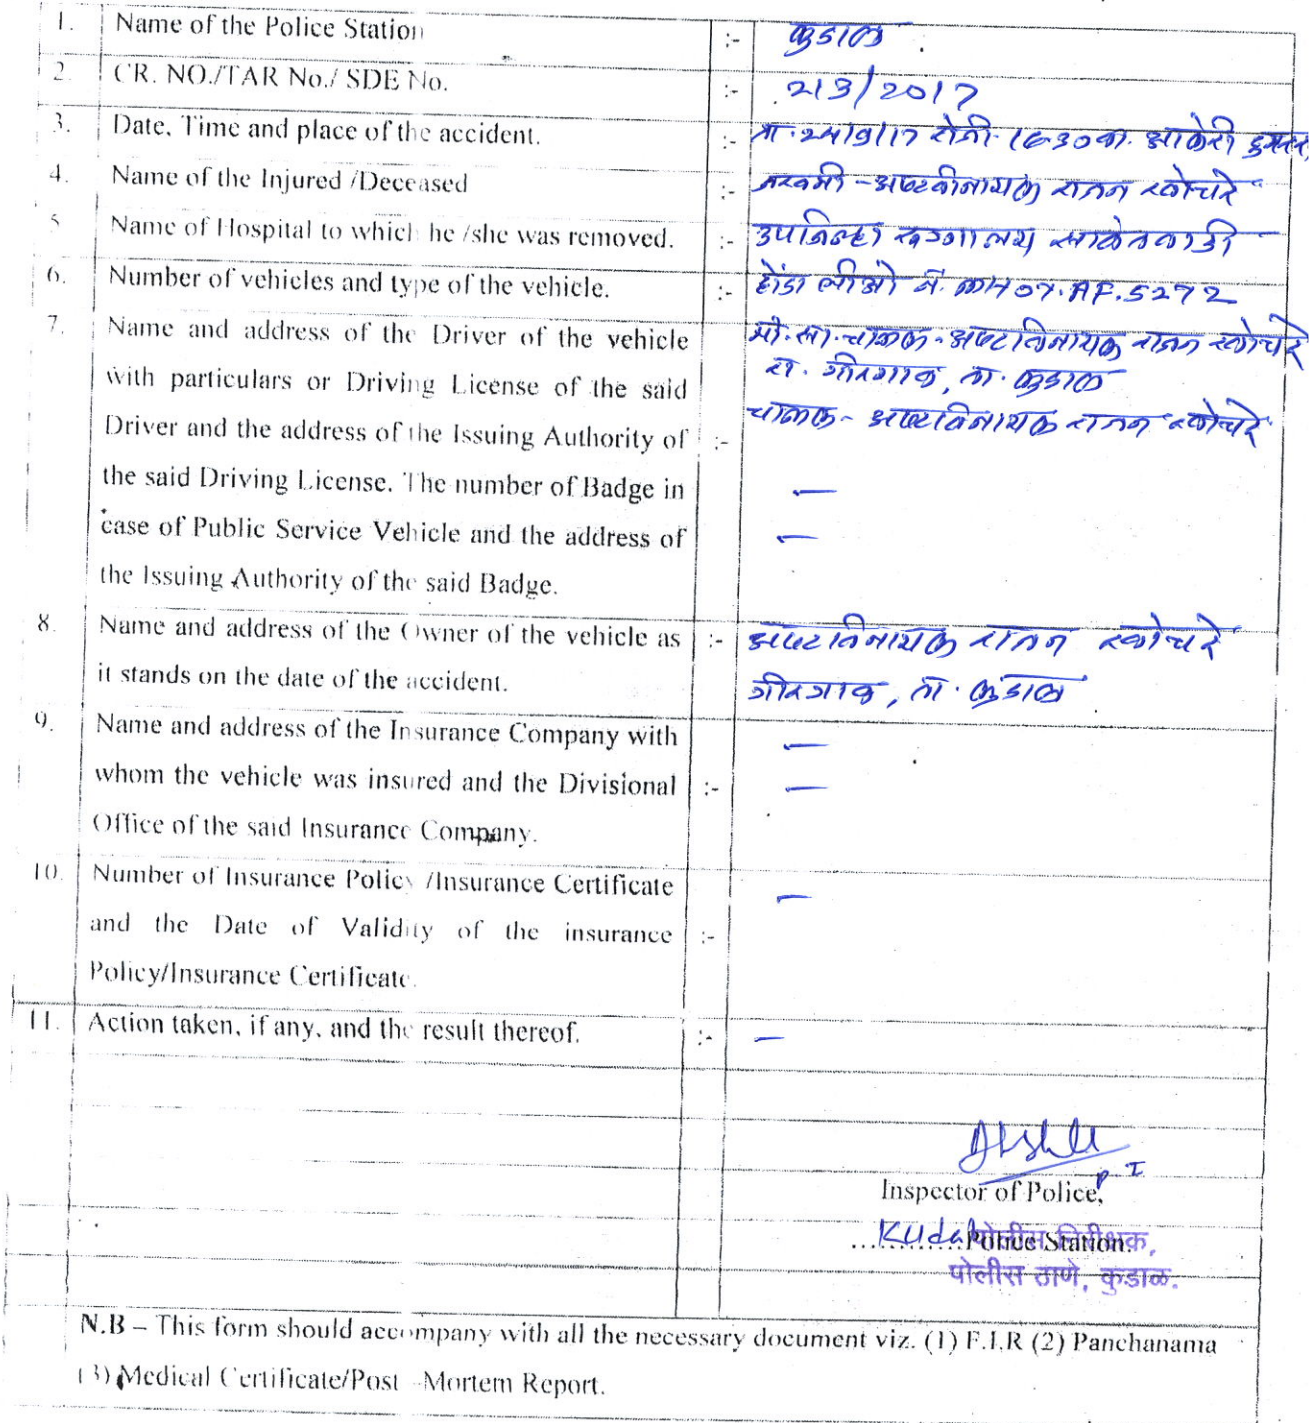 1. Name of the Police Station :- कुडाळ
2. CR. NO./TAR No./ SDE No. :- 213/2017
3. Date, Time and place of the accident. :- ता. 24/9/17 रोजी 16-30 वा. आकेरी
4. Name of the Injured /Deceased :- जखमी - अष्टवीनायक राजन खोचरे
5 Name of Hospital to which he /she was removed. :- उपजिल्हा रुग्णालय सावंतवाडी
6. Number of vehicles and type of the vehicle. :- होंडा लीओ नं. MH07.AF.5272
7. Name and address of the Driver of the vehicle मो. सा. चालक - अष्टविनायक राजन खोचरे
with particulars or Driving License of the said रा. गोरगाव, ता. कुडाळ
Driver and the address of the Issuing Authority of :- चालक - अष्टविनायक राजन खोचरे
the said Driving License. The number of Badge in —
case of Public Service Vehicle and the address of —
the Issuing Authority of the said Badge.
8. Name and address of the Owner of the vehicle as :- अष्टविनायक राजन खोचरे
it stands on the date of the accident. गोरगाव, ता. कुडाळ
9. Name and address of the Insurance Company with —
whom the vehicle was insured and the Divisional :- —
Office of the said Insurance Company.
10. Number of Insurance Policy /Insurance Certificate —
and the Date of Validity of the insurance :-
Policy/Insurance Certificate.
11. Action taken, if any, and the result thereof. :- —
P.I
Inspector of Police,
Kudal Police Station.
पोलीस निरीक्षक,
पोलीस ठाणे, कुडाळ.
N.B – This form should accompany with all the necessary document viz. (1) F.I.R (2) Panchanama
(3) Medical Certificate/Post -Mortem Report.